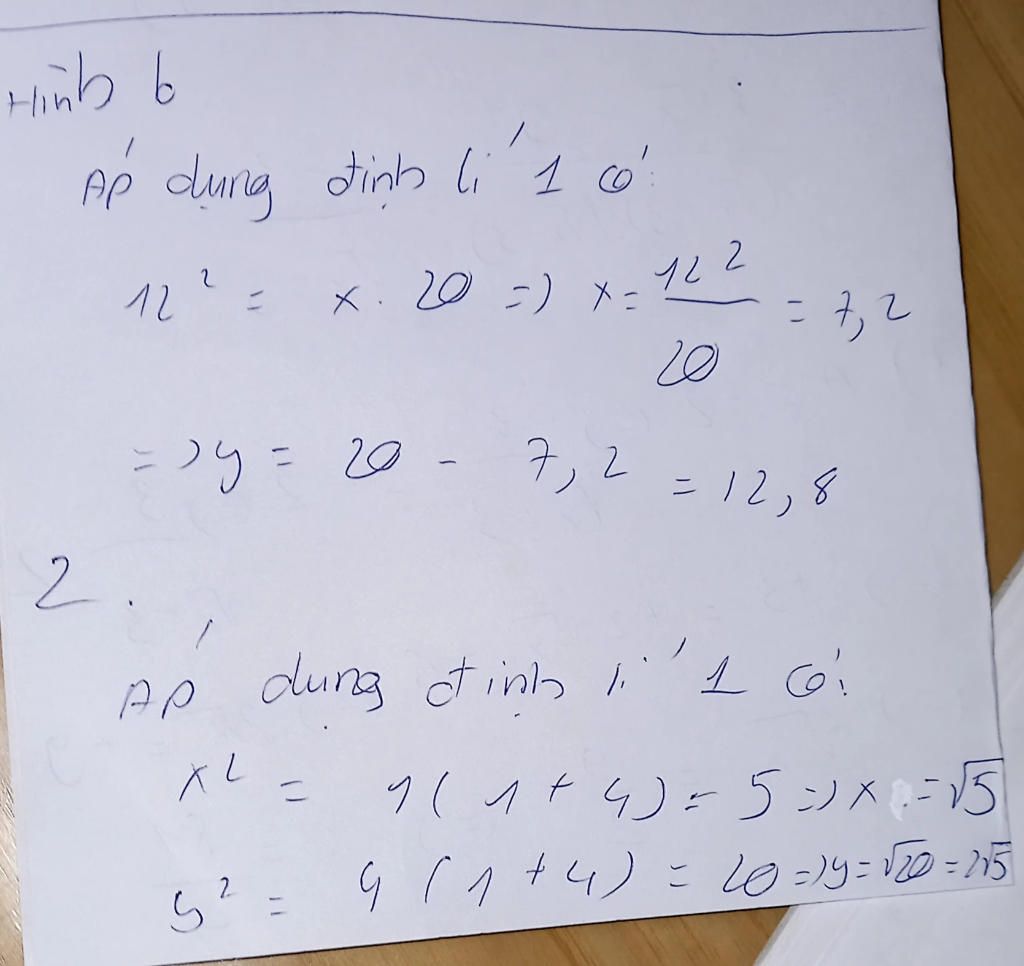 Hình b
Áp dụng định lí 1 có:
12² = x . 20 => x = 12²/20 = 7,2
=> y = 20 - 7,2 = 12,8
2.
Áp dụng định lí 1 có:
x² = 1(1+4) = 5 => x = √5
y² = 4(1+4) = 20 => y = √20 = 2√5